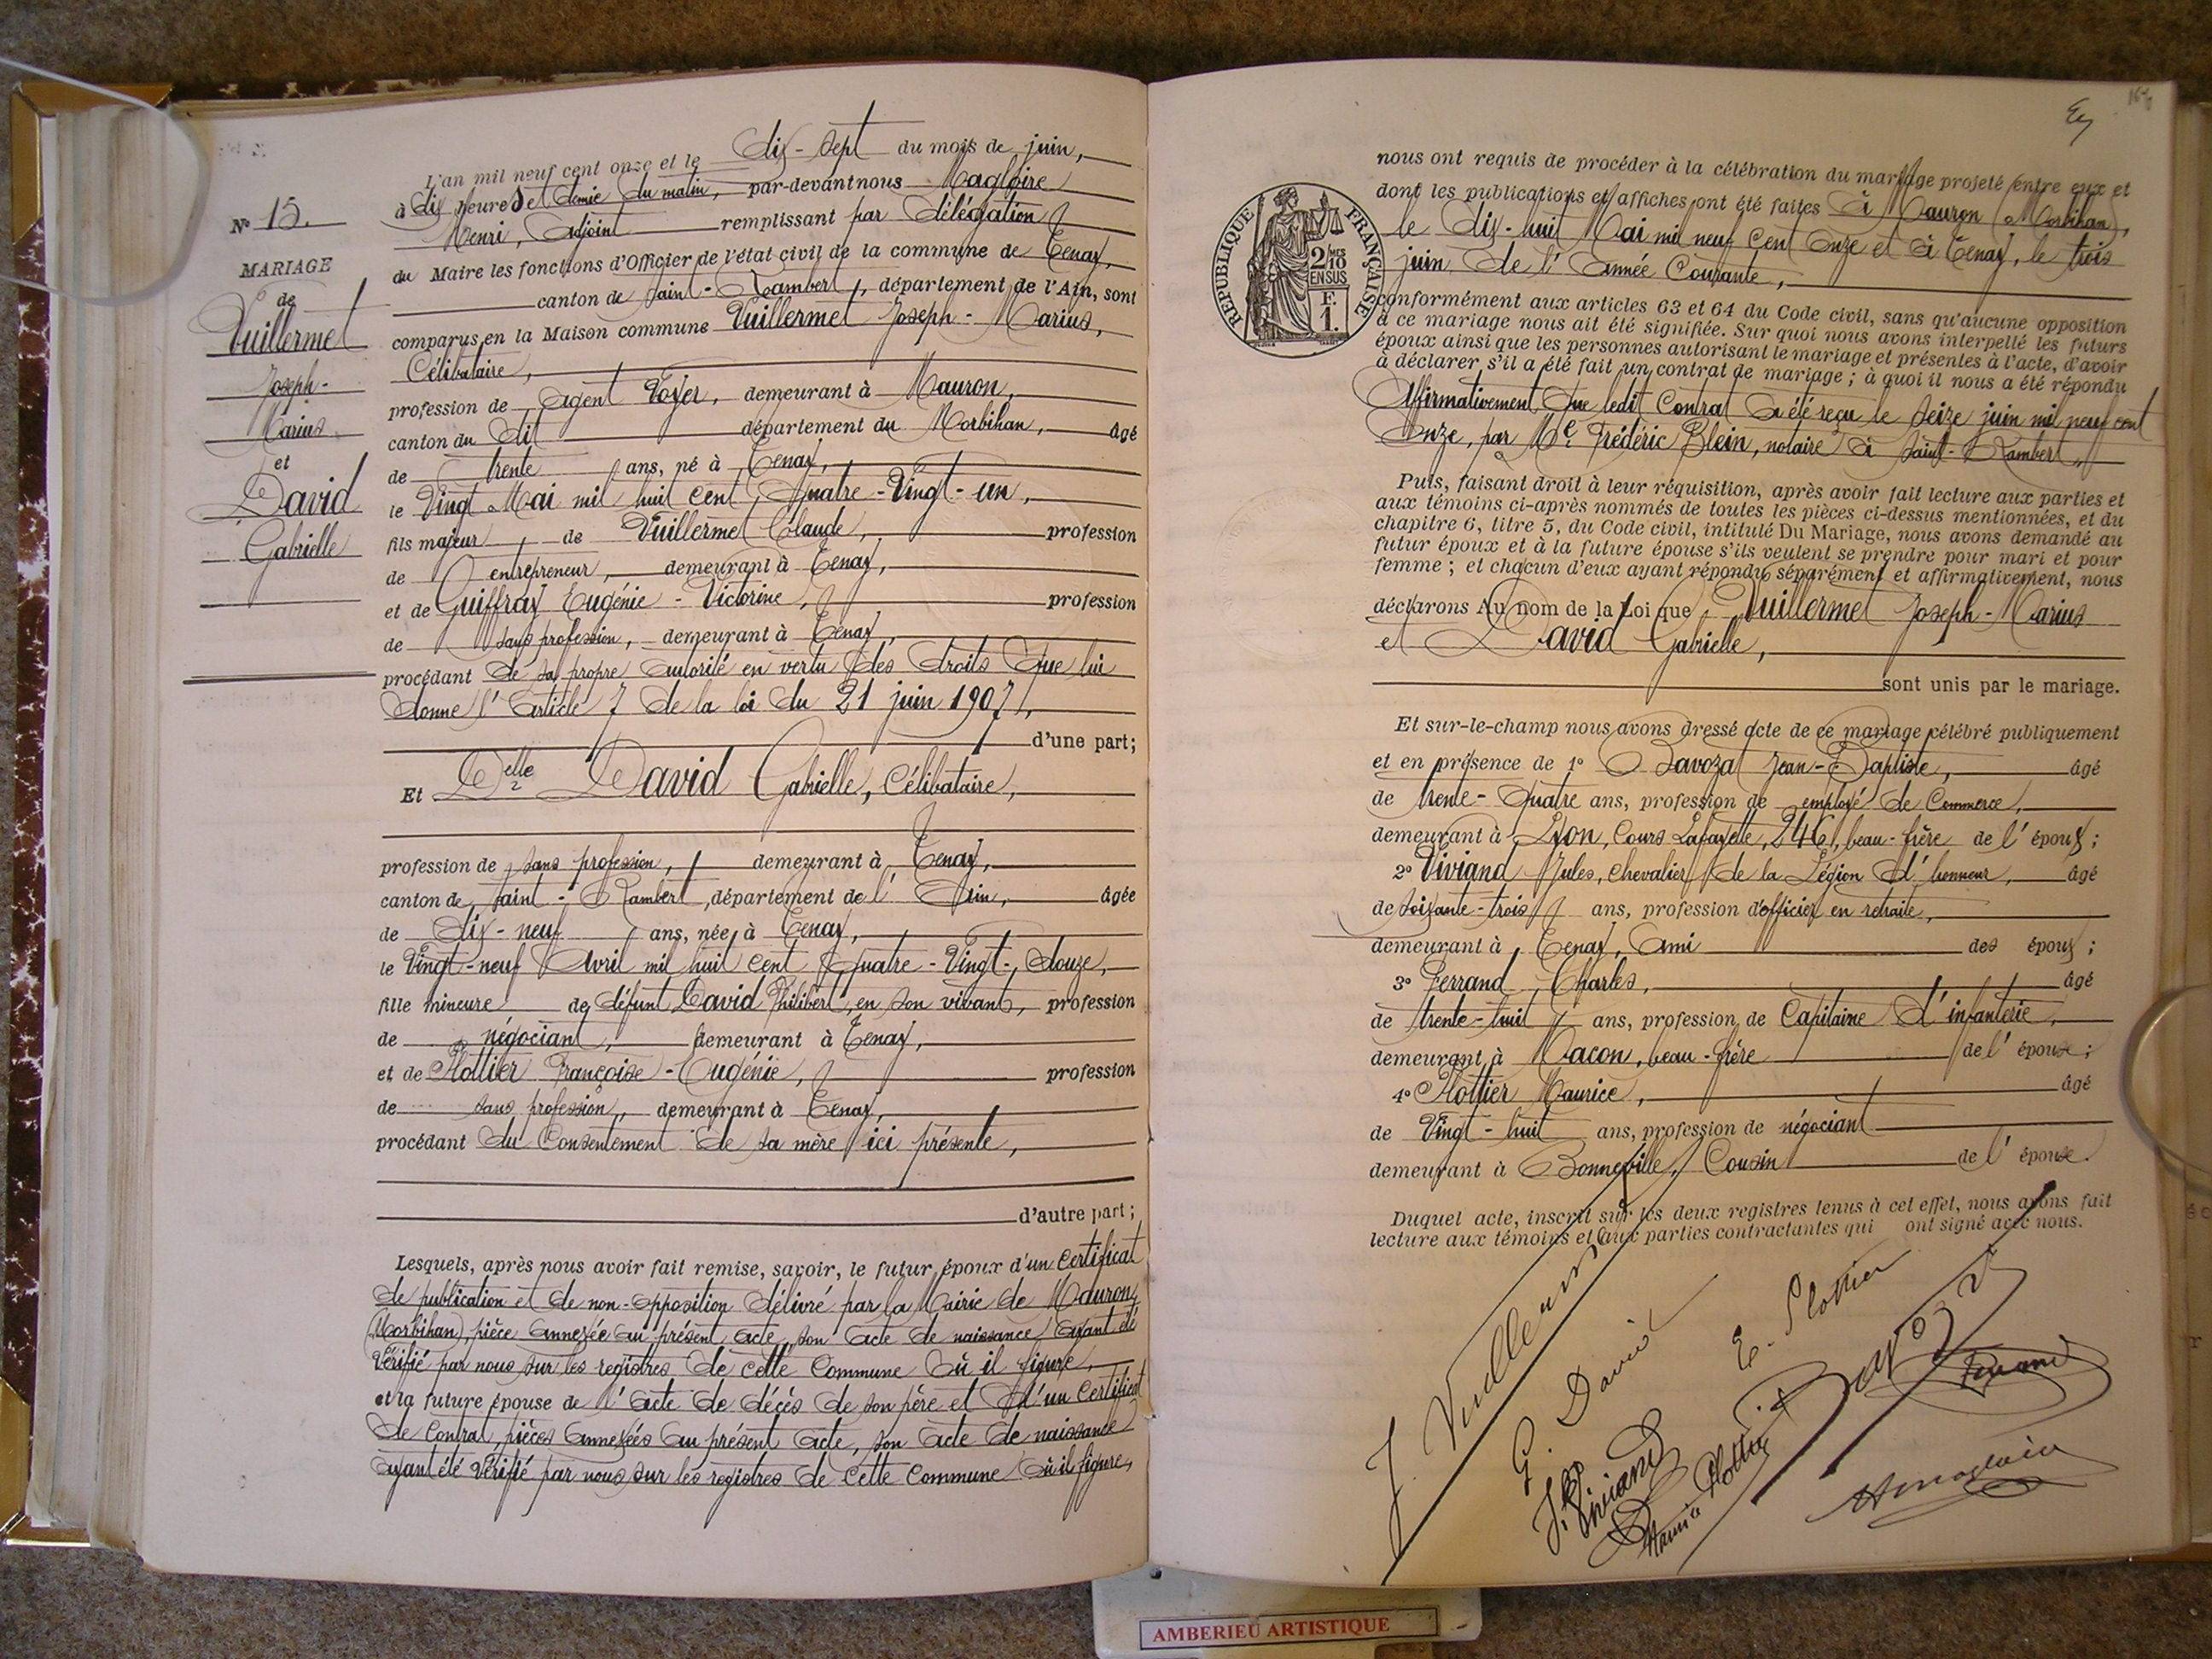 L'an mil neuf cent onze et le dix-sept du mois de juin,
à dix heures et demie du matin, par-devant nous Magloire
Henri, Adjoint remplissant par délégation
du Maire les fonctions d'Officier de l'état civil de la commune de Tenay,
canton de Saint-Rambert, département de l'Ain, sont
comparus en la Maison commune Vuillermet Joseph-Marius,
Célibataire,
profession de agent Voyer, demeurant à Mauron,
canton du dit département du Morbihan, âgé
de trente ans, né à Tenay,
le Vingt Mai mil huit cent Quatre-Vingt-un,
fils majeur de Vuillermet Claude, profession
de entrepreneur, demeurant à Tenay,
et de Guiffray Eugénie-Victorine, profession
de sans profession, demeurant à Tenay,
procédant de sa propre autorité en vertu des droits que lui
donne l'article 7 de la loi du 21 juin 1907,
d'une part;
Et Delle David Gabrielle, Célibataire,
profession de sans profession, demeurant à Tenay,
canton de Saint-Rambert, département de l'Ain, âgée
de dix-neuf ans, née à Tenay,
le Vingt-neuf Avril mil huit cent Quatre-Vingt-douze,
fille mineure de défunt David Philibert, en son vivant, profession
de négociant, demeurant à Tenay,
et de Plottier Françoise-Eugénie, profession
de sans profession, demeurant à Tenay,
procédant du Consentement de sa mère ici présente,
d'autre part;
Lesquels, après nous avoir fait remise, savoir, le futur époux d'un Certificat
de publication et de non-opposition délivré par la Mairie de Mauron
(Morbihan), pièce annexée au présent acte, son acte de naissance ayant été
Vérifié par nous sur les registres de cette Commune où il figure,
et la future épouse de l'acte de décès de son père et d'un Certificat
de Contrat, pièces annexées au présent acte, son acte de naissance
ayant été Vérifié par nous sur les registres de cette Commune où il figure,
N° 15.
MARIAGE
de
Vuillermet
Joseph-
Marius
et
David
Gabrielle
nous ont requis de procéder à la célébration du mariage projeté entre eux et
dont les publications et affiches ont été faites à Mauron (Morbihan),
le dix-huit Mai mil neuf cent onze et à Tenay, le trois
juin de l'année Courante,
conformément aux articles 63 et 64 du Code civil, sans qu'aucune opposition
à ce mariage nous ait été signifiée. Sur quoi nous avons interpellé les futurs
époux ainsi que les personnes autorisant le mariage et présentes à l'acte, d'avoir
à déclarer s'il a été fait un contrat de mariage; à quoi il nous a été répondu
Affirmativement, que ledit Contrat a été reçu le seize juin mil neuf cent
onze, par Me Frédéric Blein, notaire à Saint-Rambert
Puis, faisant droit à leur réquisition, après avoir fait lecture aux parties et
aux témoins ci-après nommés de toutes les pièces ci-dessus mentionnées, et du
chapitre 6, titre 5, du Code civil, intitulé Du Mariage, nous avons demandé au
futur époux et à la future épouse s'ils veulent se prendre pour mari et pour
femme; et chacun d'eux ayant répondu séparément et affirmativement, nous
déclarons Au nom de la Loi que Vuillermet Joseph-Marius
et David Gabrielle,
sont unis par le mariage.
Et sur-le-champ nous avons dressé acte de ce mariage célébré publiquement
et en présence de 1° Bavozat Jean-Baptiste, âgé
de trente-quatre ans, profession de employé de Commerce,
demeurant à Lyon, Cours Lafayette, 246, beau-frère de l'époux;
2° Viviand Jules, Chevalier de la Légion d'honneur, âgé
de soixante-trois ans, profession d'officier en retraite,
demeurant à Tenay, Ami des époux;
3° Ferrand Charles, âgé
de trente-huit ans, profession de Capitaine d'infanterie,
demeurant à Macon, beau-frère de l'épouse;
4° Plottier Maurice, âgé
de Vingt-huit ans, profession de négociant
demeurant à Bonneville, Cousin de l'épouse.
Duquel acte, inscrit sur les deux registres tenus à cet effet, nous avons fait
lecture aux témoins et aux parties contractantes qui ont signé avec nous.
J. Vuillermet
G. David
E. Plottier
Bavozat
Ferrand
Viviand
Maurice Plottier
REPUBLIQUE FRANÇAISE
2/10 MES
EN SUS
F.
1.
AMBERIEU ARTISTIQUE